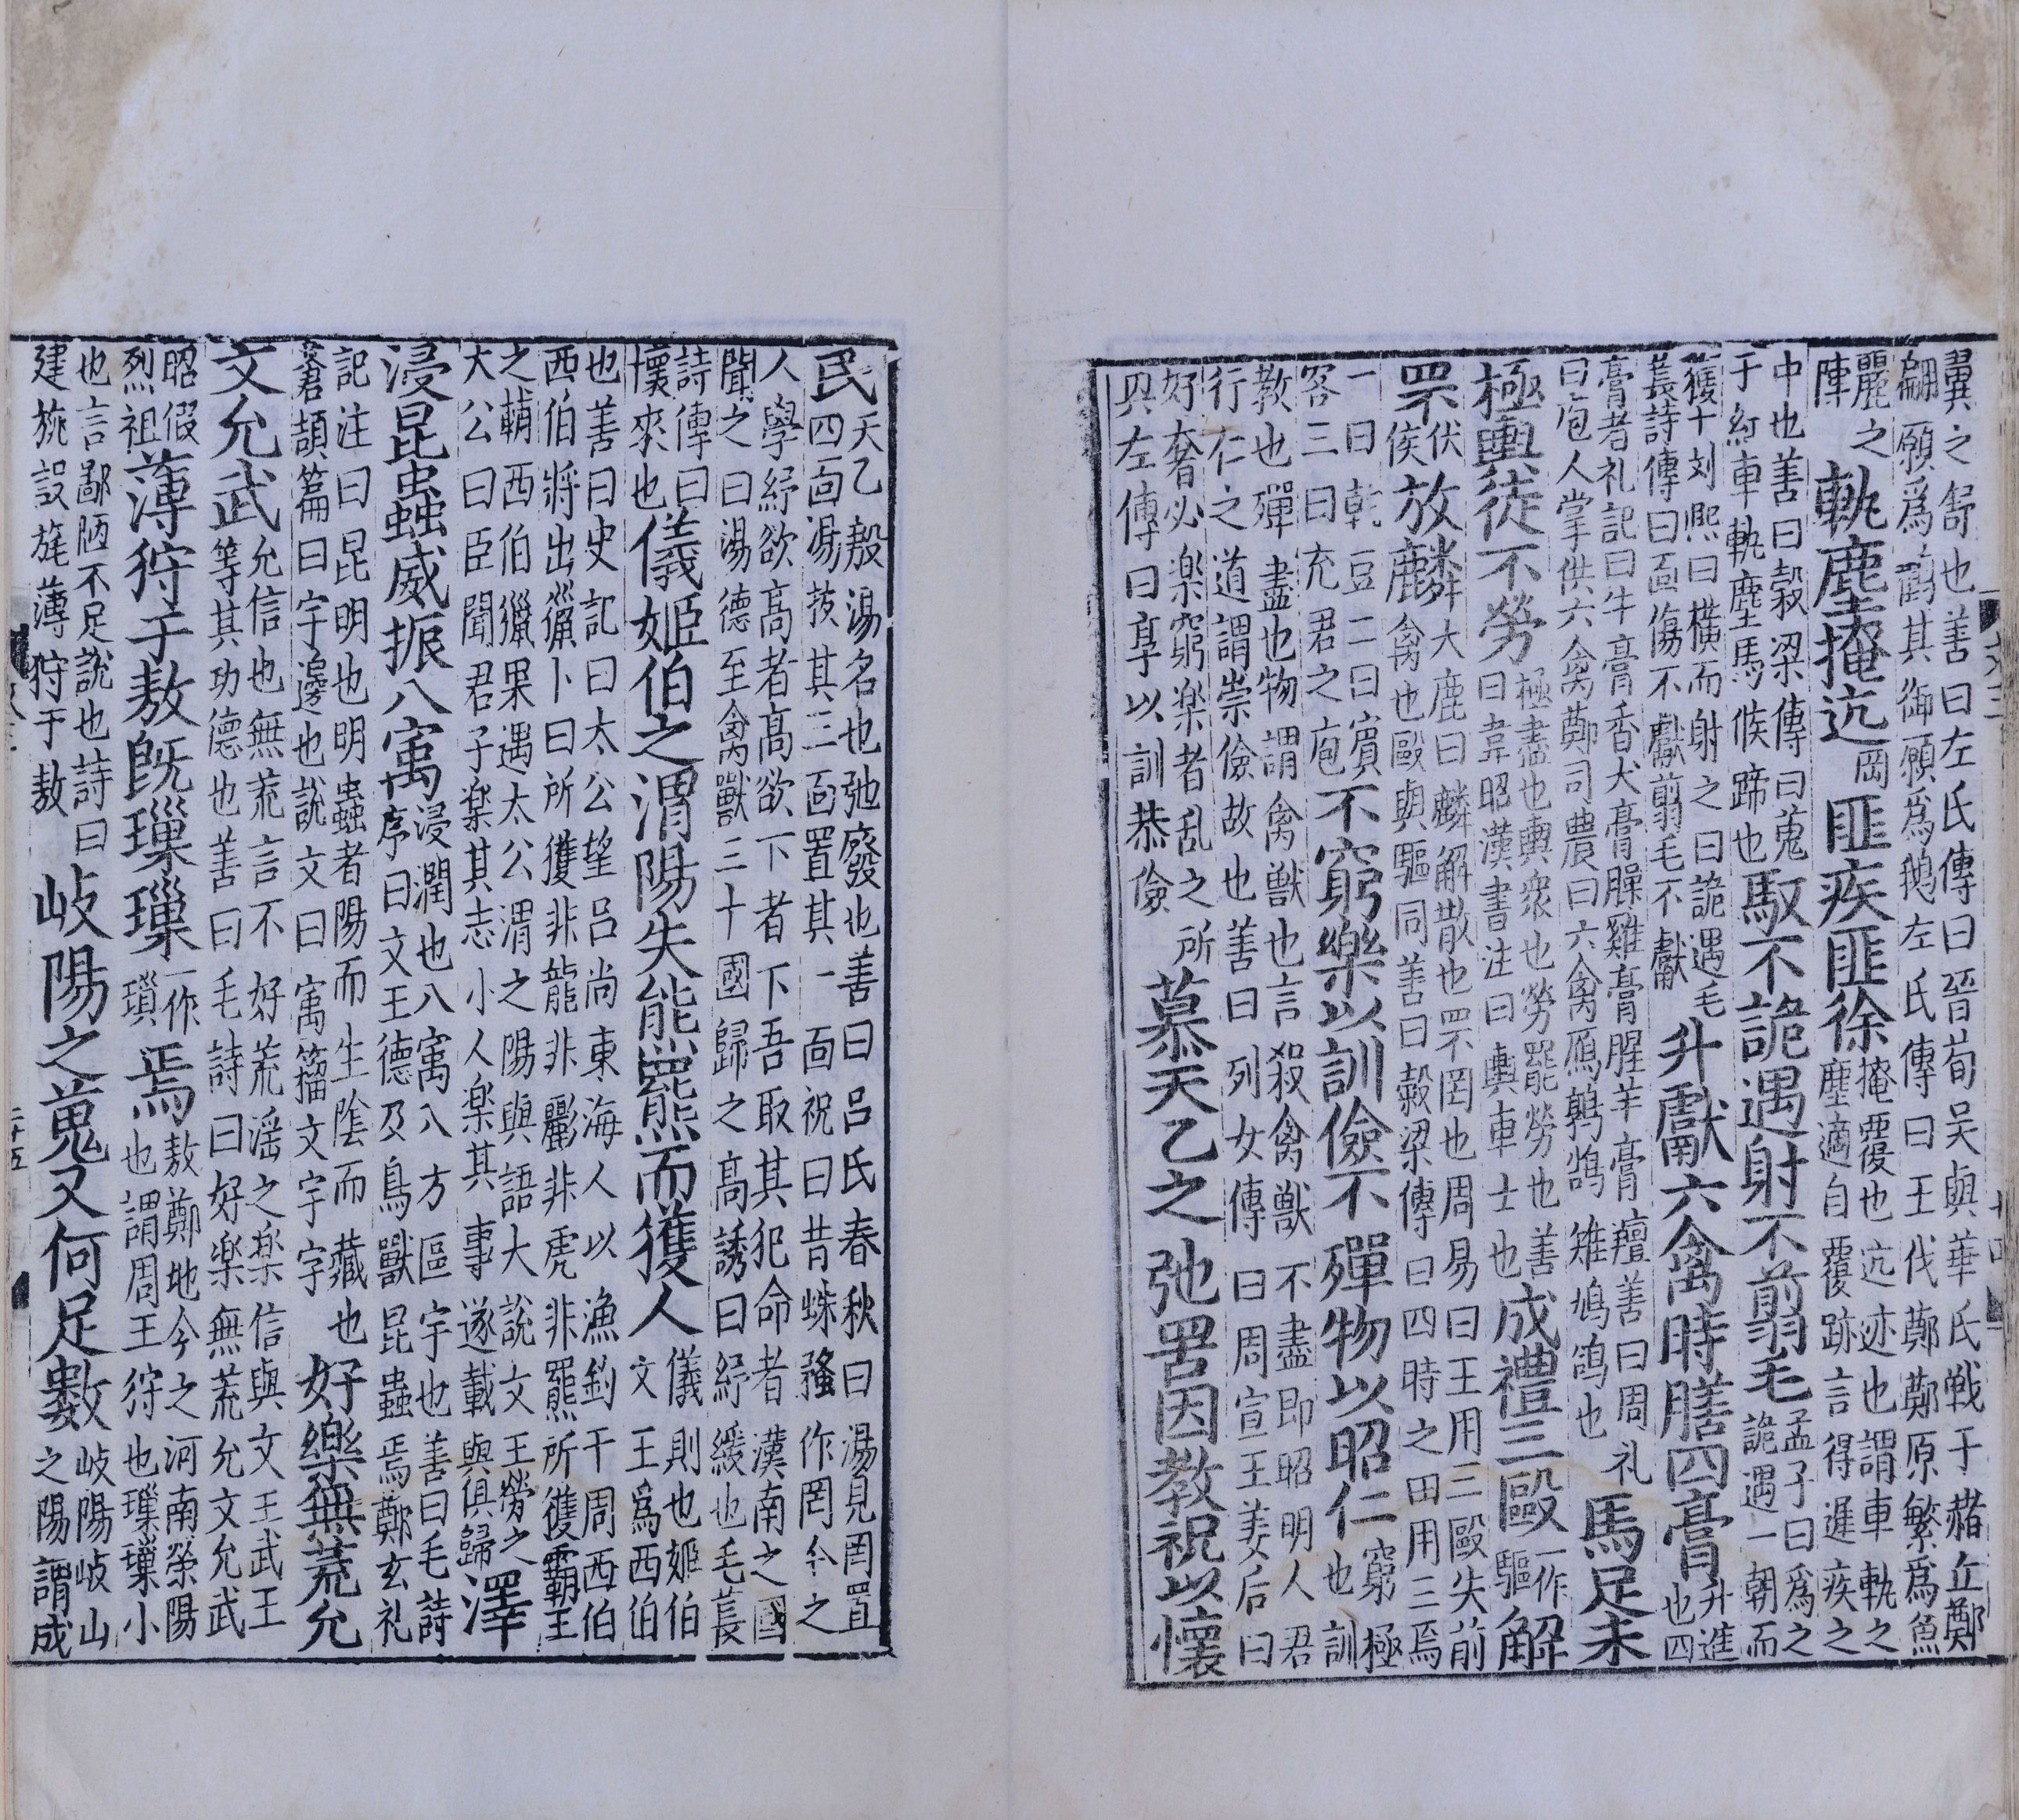 翼之舒也善曰左氏傳曰晉荀吴與華氏戦于赭丘鄭
翩願爲鸛其御願爲鵝左氏傳曰王伐鄭鄭原繁爲魚
麗之
陣
軌塵掩迒
岡
匪疾匪徐
掩覆也迒迹也謂車軌之
塵適自覆跡言得遲疾之
中也善曰榖梁傳曰蒐
于紅車軌塵馬候蹄也
馭不詭遇射不翦毛
孟子曰爲之
詭遇一朝而
獲十刘熈曰横而射之曰詭遇毛
萇詩傳曰面傷不獻翦毛不獻
升獻六禽時膳四膏
升進
也四
膏者礼記曰牛膏香犬膏臊雞膏腥羊膏羶善曰周礼
曰庖人掌供六禽鄭司農曰六禽鴈鶉鷃雉鳩鴿也
馬足未
極輿徒不勞
極盡也輿衆也勞罷勞也善
曰韋昭漢書注曰輿車士也
成禮三毆
一作
驅
解
罘
伏
侯
放麟
大鹿曰麟解散也罘罔也周易曰王用三毆失前
禽也毆與驅同善曰榖梁傳曰四時之田用三焉
一曰乾豆二曰賓
客三曰充君之庖
不窮樂以訓儉不殫物以昭仁
窮極
也訓
教也殫盡也物謂禽獸也言殺禽獸不盡即昭明人君
行仁之道謂崇儉故也善曰列女傳曰周宣王姜后曰
好奢必楽窮楽者乱之所
興左傳曰享以訓恭儉
慕天乙之弛罟因教祝以懷
民
天乙殷湯名也弛廢也善曰吕氏春秋曰湯見罔置
四面湯拔其三面置其一面祝曰昔蛛蝥作罔今之
人學紓欲高者高欲下者下吾取其犯命者漢南之國
聞之曰湯德至禽獸三十國歸之高誘曰紓緩也毛萇
詩傳曰
懷來也
儀姬伯之渭陽失熊羆而獲人
儀則也姬伯
文王爲西伯
也善曰史記曰太公望吕尚東海人以漁釣干周西伯
西伯將出獵卜曰所獲非龍非彲非虎非羆所獲霸王
之輔西伯獵果遇太公渭之陽與語大說文王勞之
大公曰臣聞君子楽其志小人楽其事遂載與俱歸
澤
浸昆蟲威振八㝢
浸潤也八㝢八方區宇也善曰毛詩
序曰文王德及鳥獸昆蟲焉鄭玄礼
記注曰昆明也明蟲者陽而生陰而藏也
蒼頡篇曰宇邊也說文曰㝢籀文宇字
好樂無荒允
文允武
允信也無荒言不好荒淫之楽信與文王武王
等其功德也善曰毛詩曰好楽無荒允文允武
昭假
烈祖
薄狩于敖旣璅璅
一作
瑣
焉
敖鄭地今之河南滎陽
也謂周王狩也璅璅小
也言鄙陋不足說也詩曰
建旐設旄薄狩于敖
岐陽之蒐又何足數
岐陽岐山
之陽謂成
二十五